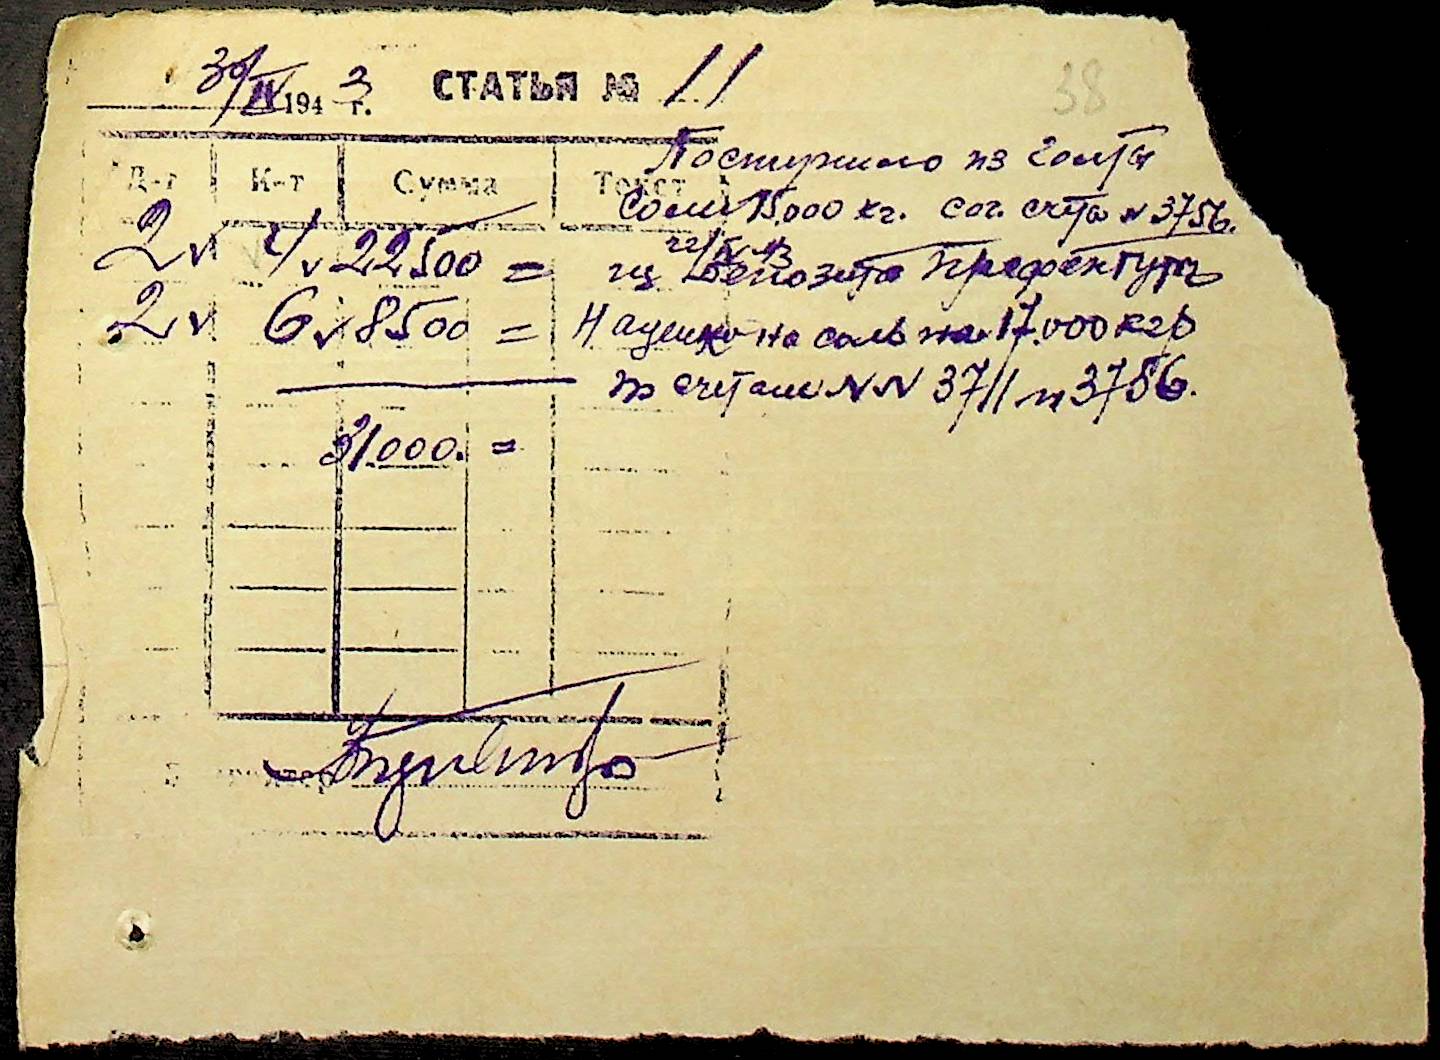 30/IV 1943 г. СТАТЬЯ № 11
38
Д-т К-т Сумма Текст
Поступило из Голта
Соли 15.000 кг. сог. счета N 3756.
2 4 22500 = из депозита Префектуры
2 6 8500 = Наценка на соль на 17.000 кгр
по счетам NN 3711 и 3756.
31.000. =